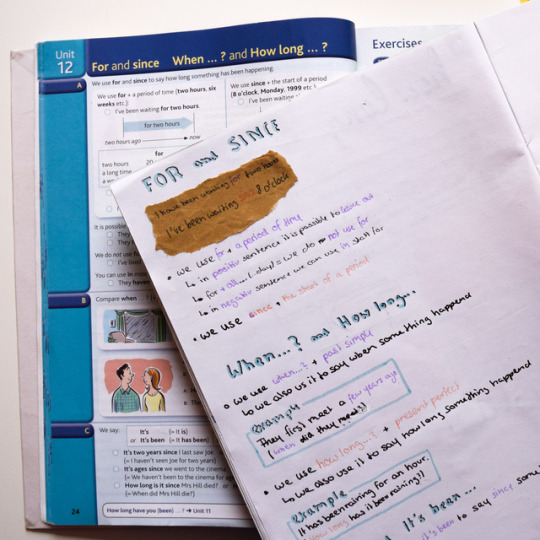 Unit
12
For and since When ... ? and How long ... ?
Exercises
A
We use for and since to say how long something has been happening.
We use for + a period of time (two hours, six
weeks etc.):
I've been waiting for two hours.
for two hours
two hours ago
now
We use since + the start of a period
(8 o'clock, Monday, 1999 etc
I've been waiting
for
two hours 20
a long time
a we
It is possible
They
They
We do not use fo
I've liv
You can use in
They haven
B
Compare when ... ?
C
We say:
It's (= it is)
or It's been (= it has been)
It's two years since I last saw Joe.
(= I haven't seen Joe for two years)
It's ages since we went to the cinema
(= We haven't been to the cinema for
How long is it since Mrs Hill died? or
(= When did Mrs Hill die?)
24
How long have you (been) ... ? → Unit 11
FOR and SINCE
I have been waiting for two hours
I've been waiting since 8 o'clock
• we use for + a period of time
↳ in positiv sentence it is possible to leave out
↳ for + all... (..day) = we do not use for
↳ in negativ sentence we can use in statt for
• we use since + the start of a period
When...? and How long..
• we use when...? + past simple
↳ we also us it to say when something happend
Example
They first meet a few years ago
when did they meet?
• we use how long...? + present perfect
↳ we also use it to say how long something happend
Example
It has been raining for an hour.
How long has it been raining??
It's been ...
it's been to say since some